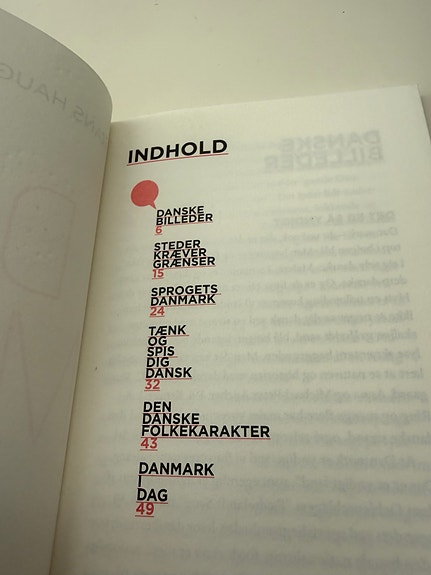 INDHOLD
DANSKE
BILLEDER
6
STEDER
KRÆVER
GRÆNSER
15
SPROGETS
DANMARK
24
TÆNK
OG
SPIS
DIG
DANSK
32
DEN
DANSKE
FOLKEKARAKTER
43
DANMARK
I
DAG
49